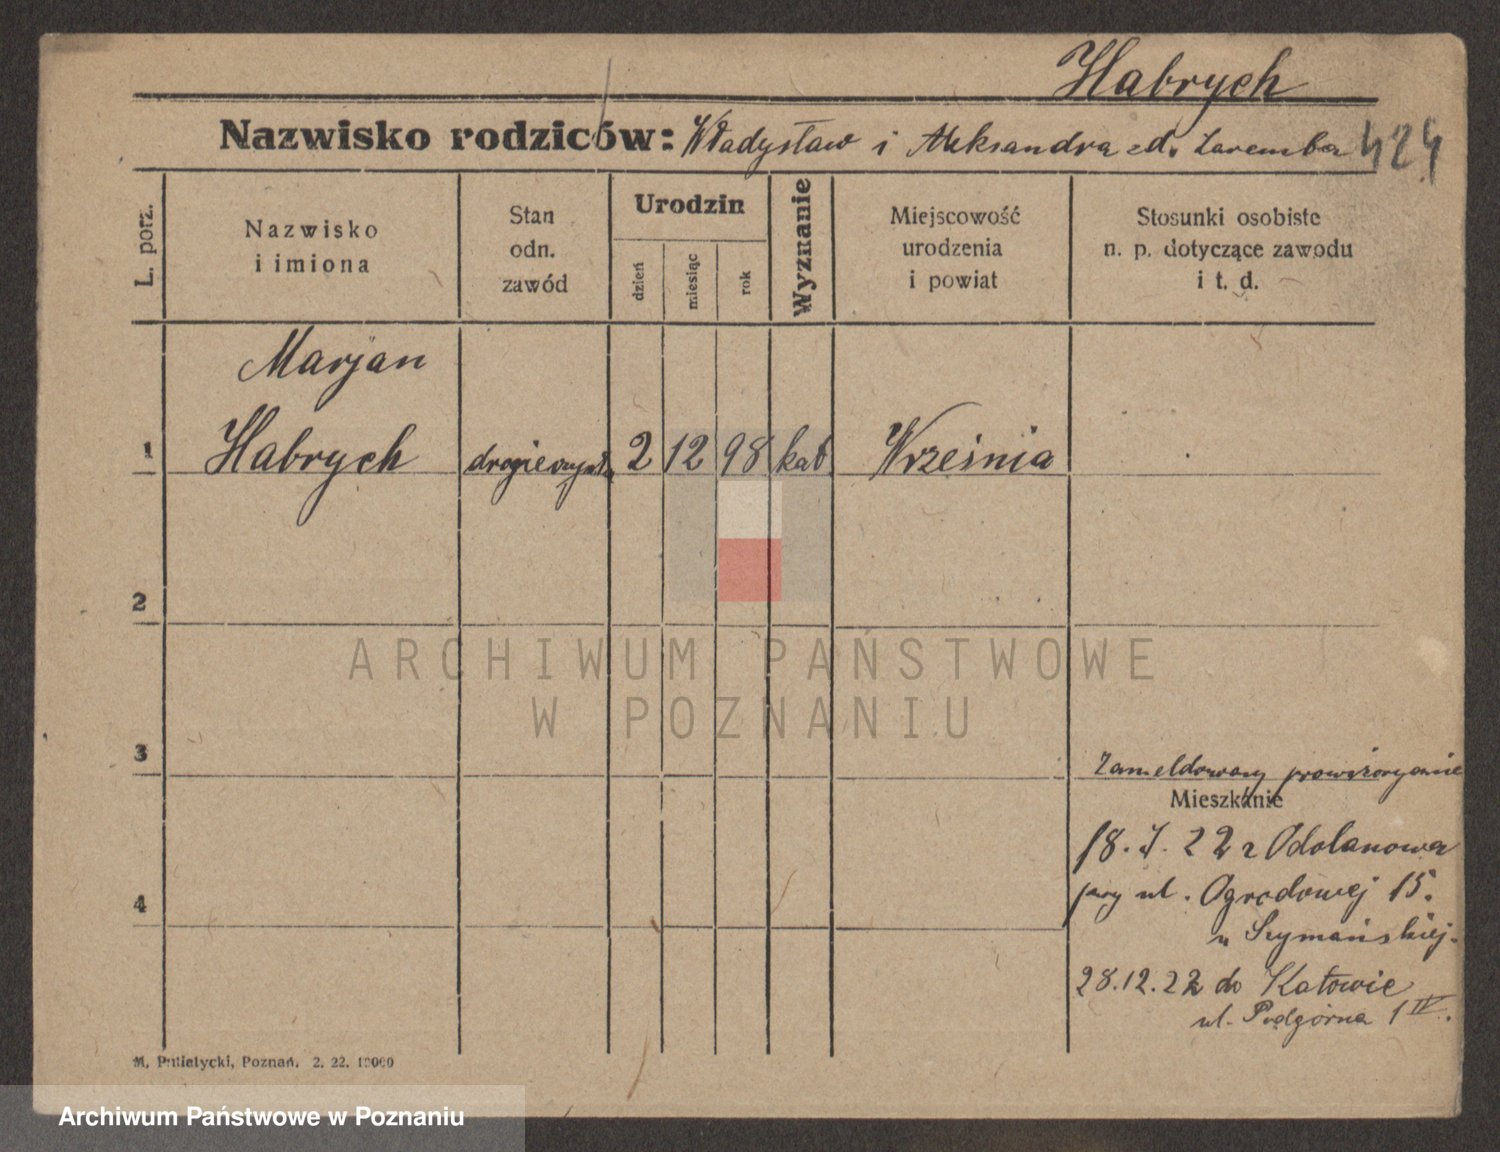 Habrych
Nazwisko rodziców: Władysław i Aleksandra zd. Zaremba 424
L. porz.
Nazwisko
i imiona
Stan
odn.
zawód
Urodzin
dzień
miesiąc
rok
Wyznanie
Miejscowość
urodzenia
i powiat
Stosunki osobiste
n. p. dotyczące zawodu
i t. d.
Marjan
1 Habrych 2 12 98 kat Września
2
ARCHIWUM PAŃSTWOWE
W POZNANIU
3
Zameldowany prowizorycznie
Mieszkanie
18. 22 z Odolanowa
przy ul. Ogrodowej 15.
u Szymańskiej.
4
28.12.22 do Katowic
ul. Podgórna 1 IV.
M. Putiatycki, Poznań. 2. 22. 10000
Archiwum Państwowe w Poznaniu